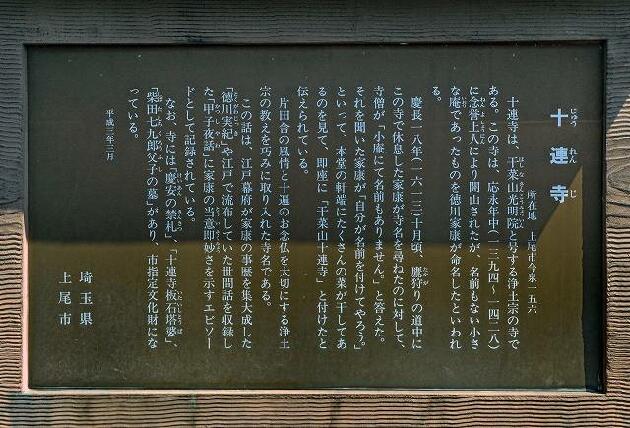 十連寺
所在地　上尾市今泉一五六
十連寺は、干菜山光明院と号する浄土宗の寺で
ある。この寺は、応永年中（一三九四〜一四二八）
に念誉上人により開山されたが、名前もない小さ
な庵であったものを徳川家康が命名したといわれ
る。
慶長一八年（一六一三）十月頃、鷹狩りの道中に
この寺で休息した家康が寺名を尋ねたのに対して、
寺僧が「小庵にて名前もありません。」と答えた。
それを聞いた家康が「自分が名前を付けてやろう。」
といって、本堂の軒端にたくさんの菜が干してあ
るのを見て、即座に「干菜山十連寺」と付けたと
伝えられている。
片田舎の風情と十遍のお念仏を大切にする浄土
宗の教えを巧みに取り入れた寺名である。
この話は、江戸幕府が家康の事歴を集大成した
『徳川実紀』や江戸で流布していた世間話を収録し
た『甲子夜話』に家康の当意即妙さを示すエピソー
ドとして記録されている。
なお、寺には「慶安の禁札」、「十連寺板石塔婆」、
「柴田七九郎父子の墓」があり、市指定文化財にな
っている。
平成三年三月
埼玉県
上尾市